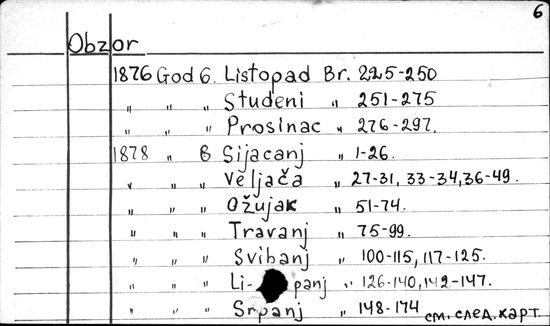 6
Obzor
1876 God 6. Listopad Br. 225-250
„ „ „ Studeni „ 251-275
„ „ „ Prosinac „ 276-297.
1878 „ 8 Sijacanj „ 1-26.
„ „ „ Veljača „ 27-31, 33-34, 36-49.
„ „ „ Ožujak „ 51-74.
„ „ „ Travanj „ 75-99.
„ „ „ Svibanj „ 100-115, 117-125.
„ „ „ Li- panj „ 126-140, 142-147.
„ „ „ Srpanj „ 148-174 см. след. карт.